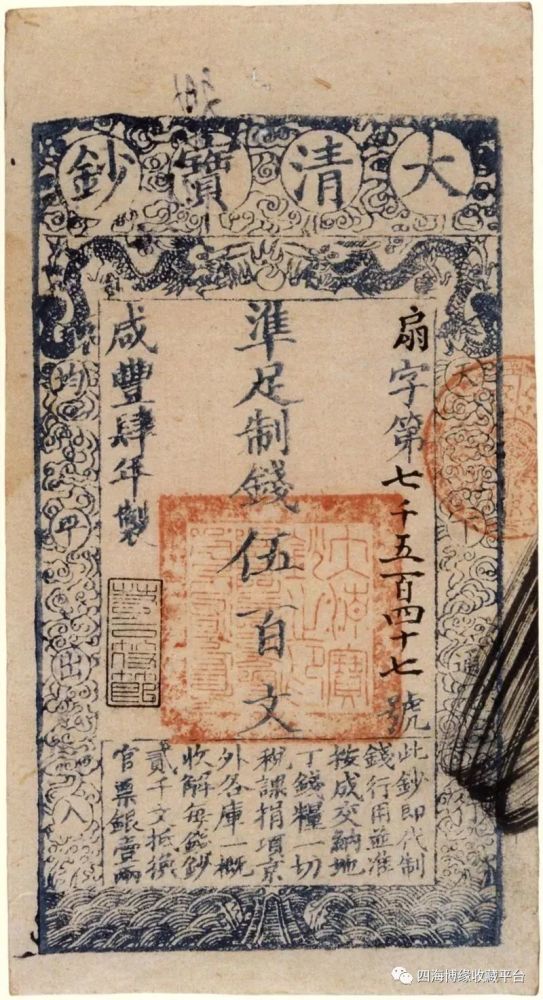 大清寶鈔
天下通行
扇字第七千五百四十七號
準足制錢伍百文
咸豐肆年製
均平出入
此鈔即代制
錢行用並准
按成交納地
丁錢糧一切
稅課捐項京
外各庫一概
收解每錢鈔
貳千文抵換
官票銀壹兩
四海博缘收藏平台